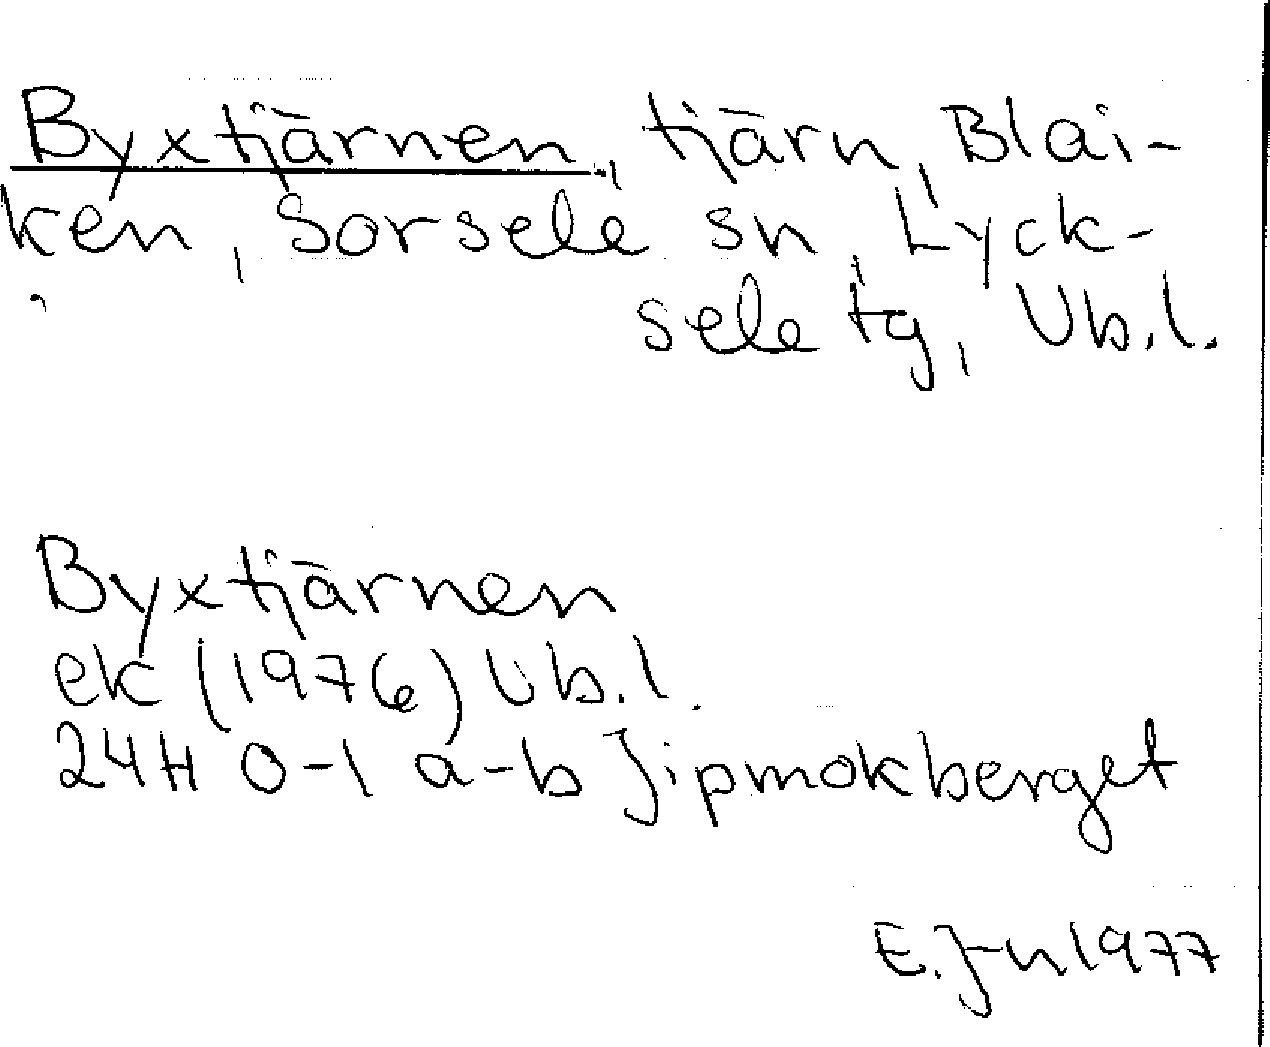 Byxtjärnen, tjärn, Blai-
ken, Sorsele sn, Lyck-
sele tg, Vb.l.
Byxtjärnen
ek (1976) Vb.l.
24H 0-1 a-b Jipmokberget
E. J-n 1977